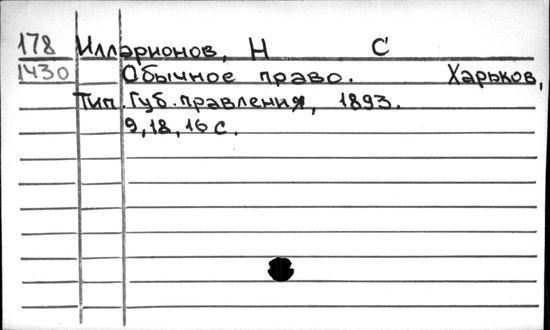 178 Илларионов, Н С
1430 Обычное право. Харьков,
Тип. Губ. правления, 1893.
9, 18, 16 с.